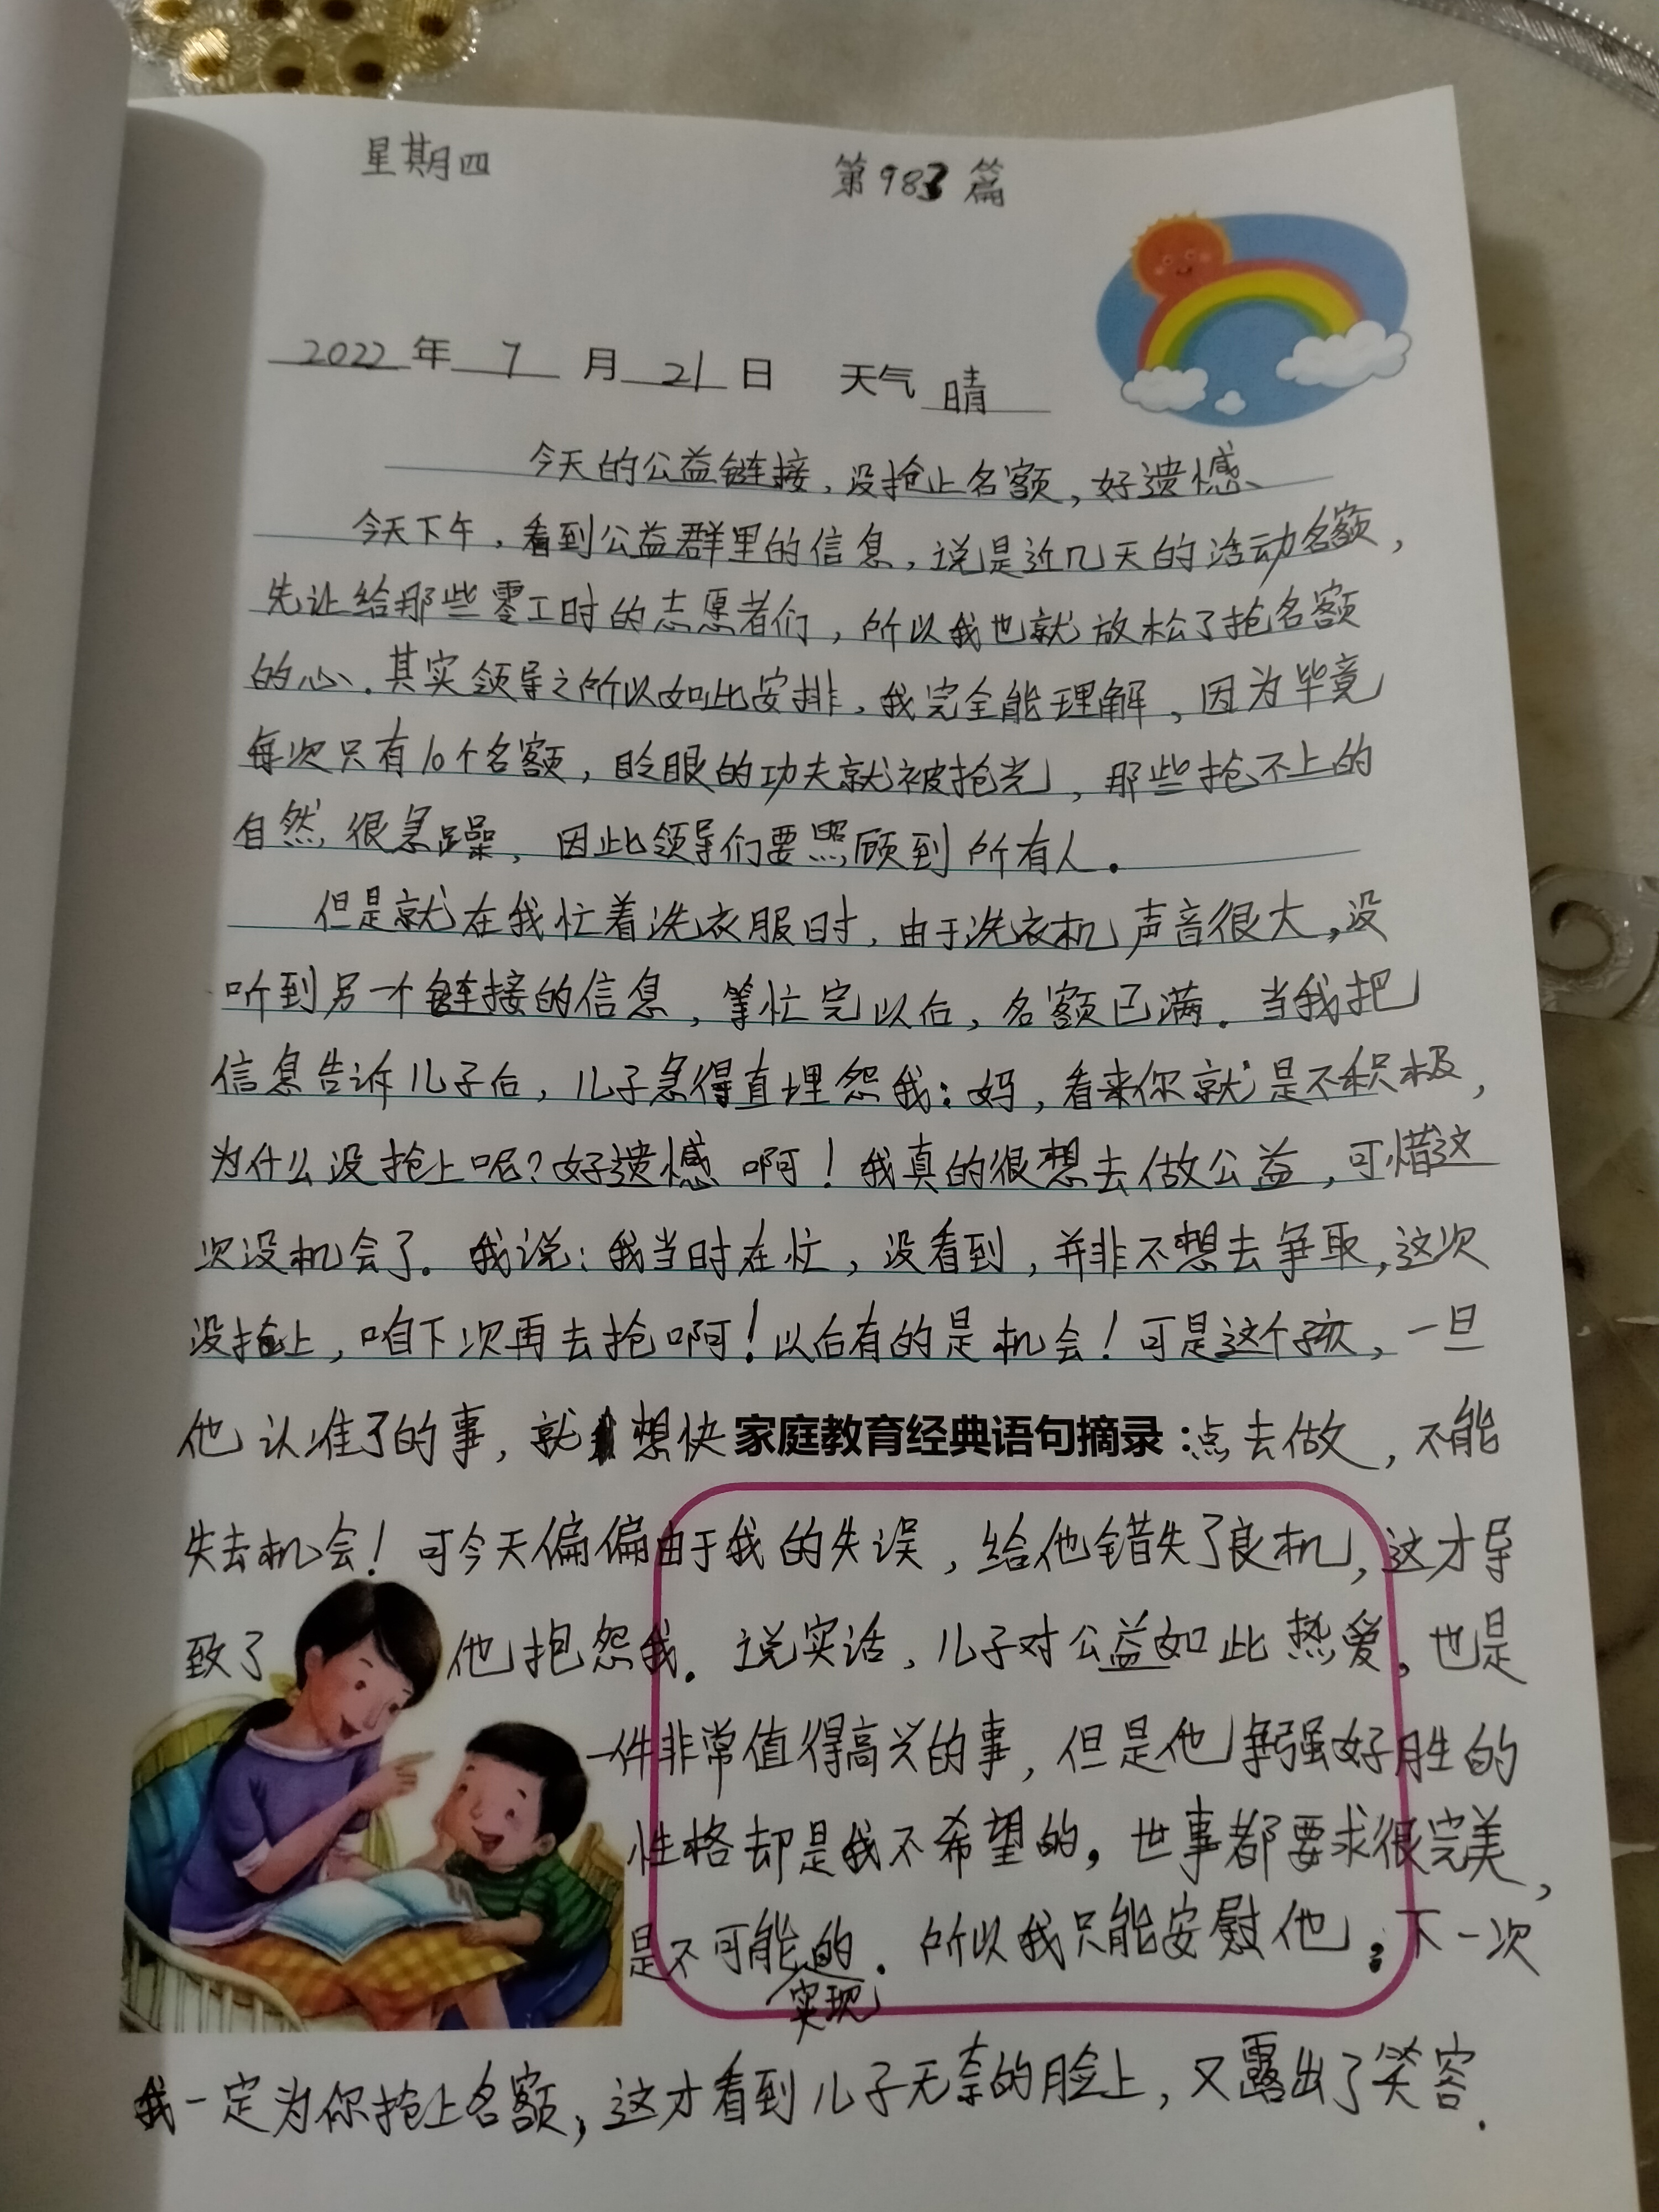 星期四 第983篇
2022年7月21日 天气 晴
今天的公益链接,没抢上名额,好遗憾、
今天下午,看到公益群里的信息,说是近几天的活动名额,
先让给那些零工时的志愿者们,所以我也就放松了抢名额
的心.其实领导之所以如此安排,我完全能理解,因为毕竟
每次只有10个名额,眨眼的功夫就被抢光,那些抢不上的
自然很急躁,因此领导们要照顾到所有人.
但是就在我忙着洗衣服时,由于洗衣机声音很大,没
听到另一个链接的信息,等忙完以后,名额已满.当我把
信息告诉儿子后,儿子急得直埋怨我:妈,看来你就是不积极,
为什么没抢上呢?好遗憾啊!我真的很想去做公益,可惜这
次没机会了.我说:我当时在忙,没看到,并非不想去争取,这次
没抢上,咱下次再去抢啊!以后有的是机会!可是这个孩,一旦
他认准了的事,就想快家庭教育经典语句摘录:点去做,不能
失去机会!可今天偏偏由于我的失误,给他错失了良机,这才导
致了他抱怨我.说实话,儿子对公益如此热爱,也是
一件非常值得高兴的事,但是他争强好胜的
性格却是我不希望的,世事都要求很完美,
是不可能实现的.所以我只能安慰他:下一次
我一定为你抢上名额,这才看到儿子无奈的脸上,又露出了笑容.